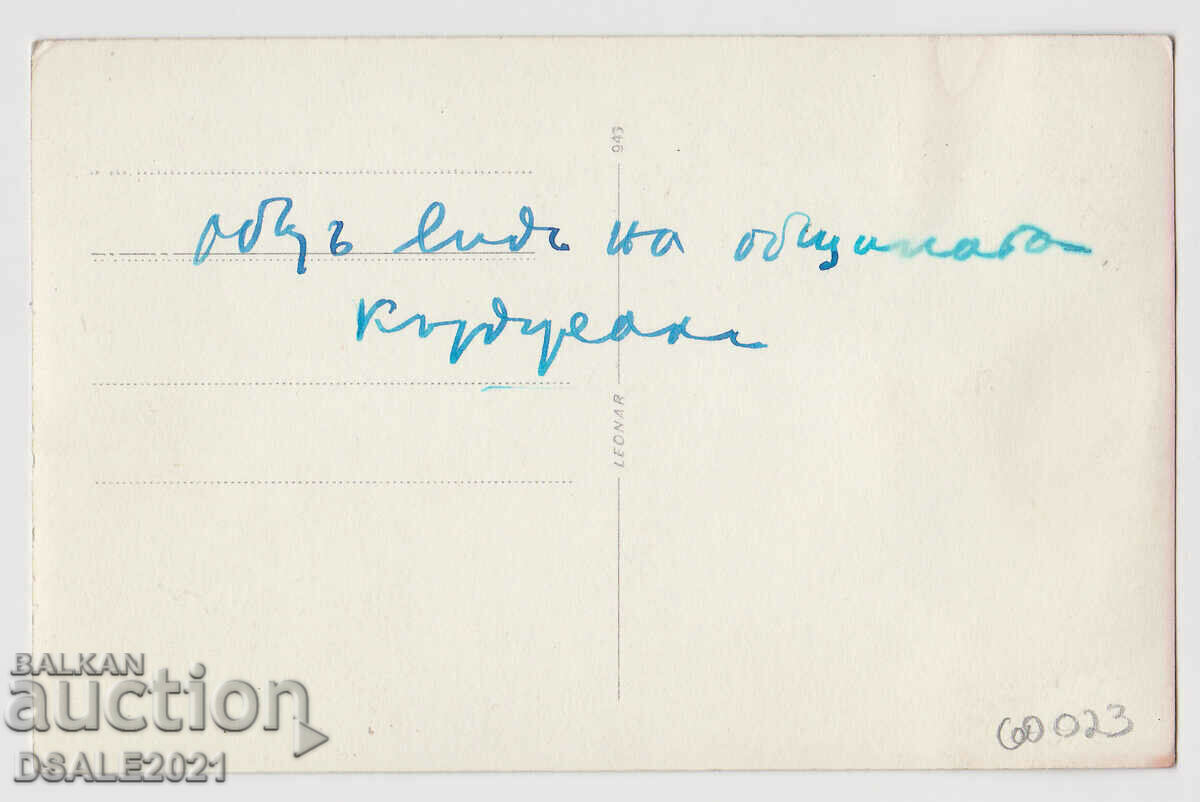 943
общъ видъ на общината
Кърджали
LEONAR
60023
BALKAN
auction
DSALE2021